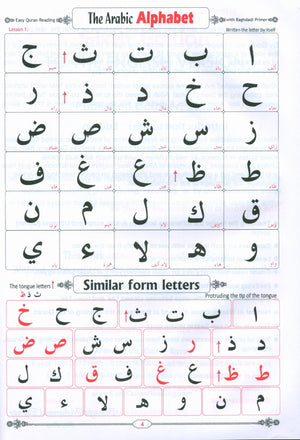 Easy Quran Reading The Arabic Alphabet with Baghdadi Primer
Lesson 1: Written the letter by itself
ا ب ت ث ج
ح خ د ذ ر
ز س ش ص ض
ط ظ ع غ ف
ق ك ل م ن
و ه لا ء ي
The tongue letters ث ذ ظ Similar form letters Protruding the tip of the tongue
ا ب ت ث ج ح خ
د ذ ر ز س ش ص ض
ط ظ ع غ ف ق ك ل
م ن و ه لا ء ي
4